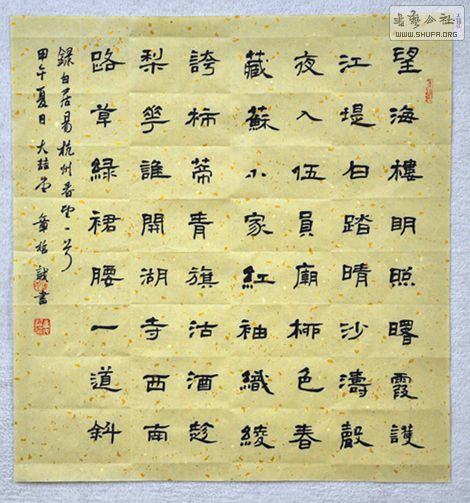 书艺公社
WWW.SHUFA.ORG
望海樓明照曙霞護
江堤白踏晴沙濤聲
夜入伍員廟柳色春
藏蘇小家紅袖織綾
誇柿蒂青旗沽酒趁
梨華誰開湖寺西南
路草綠裙腰一道斜
錄白居易杭州春望一首
甲午夏日大喆堂章書